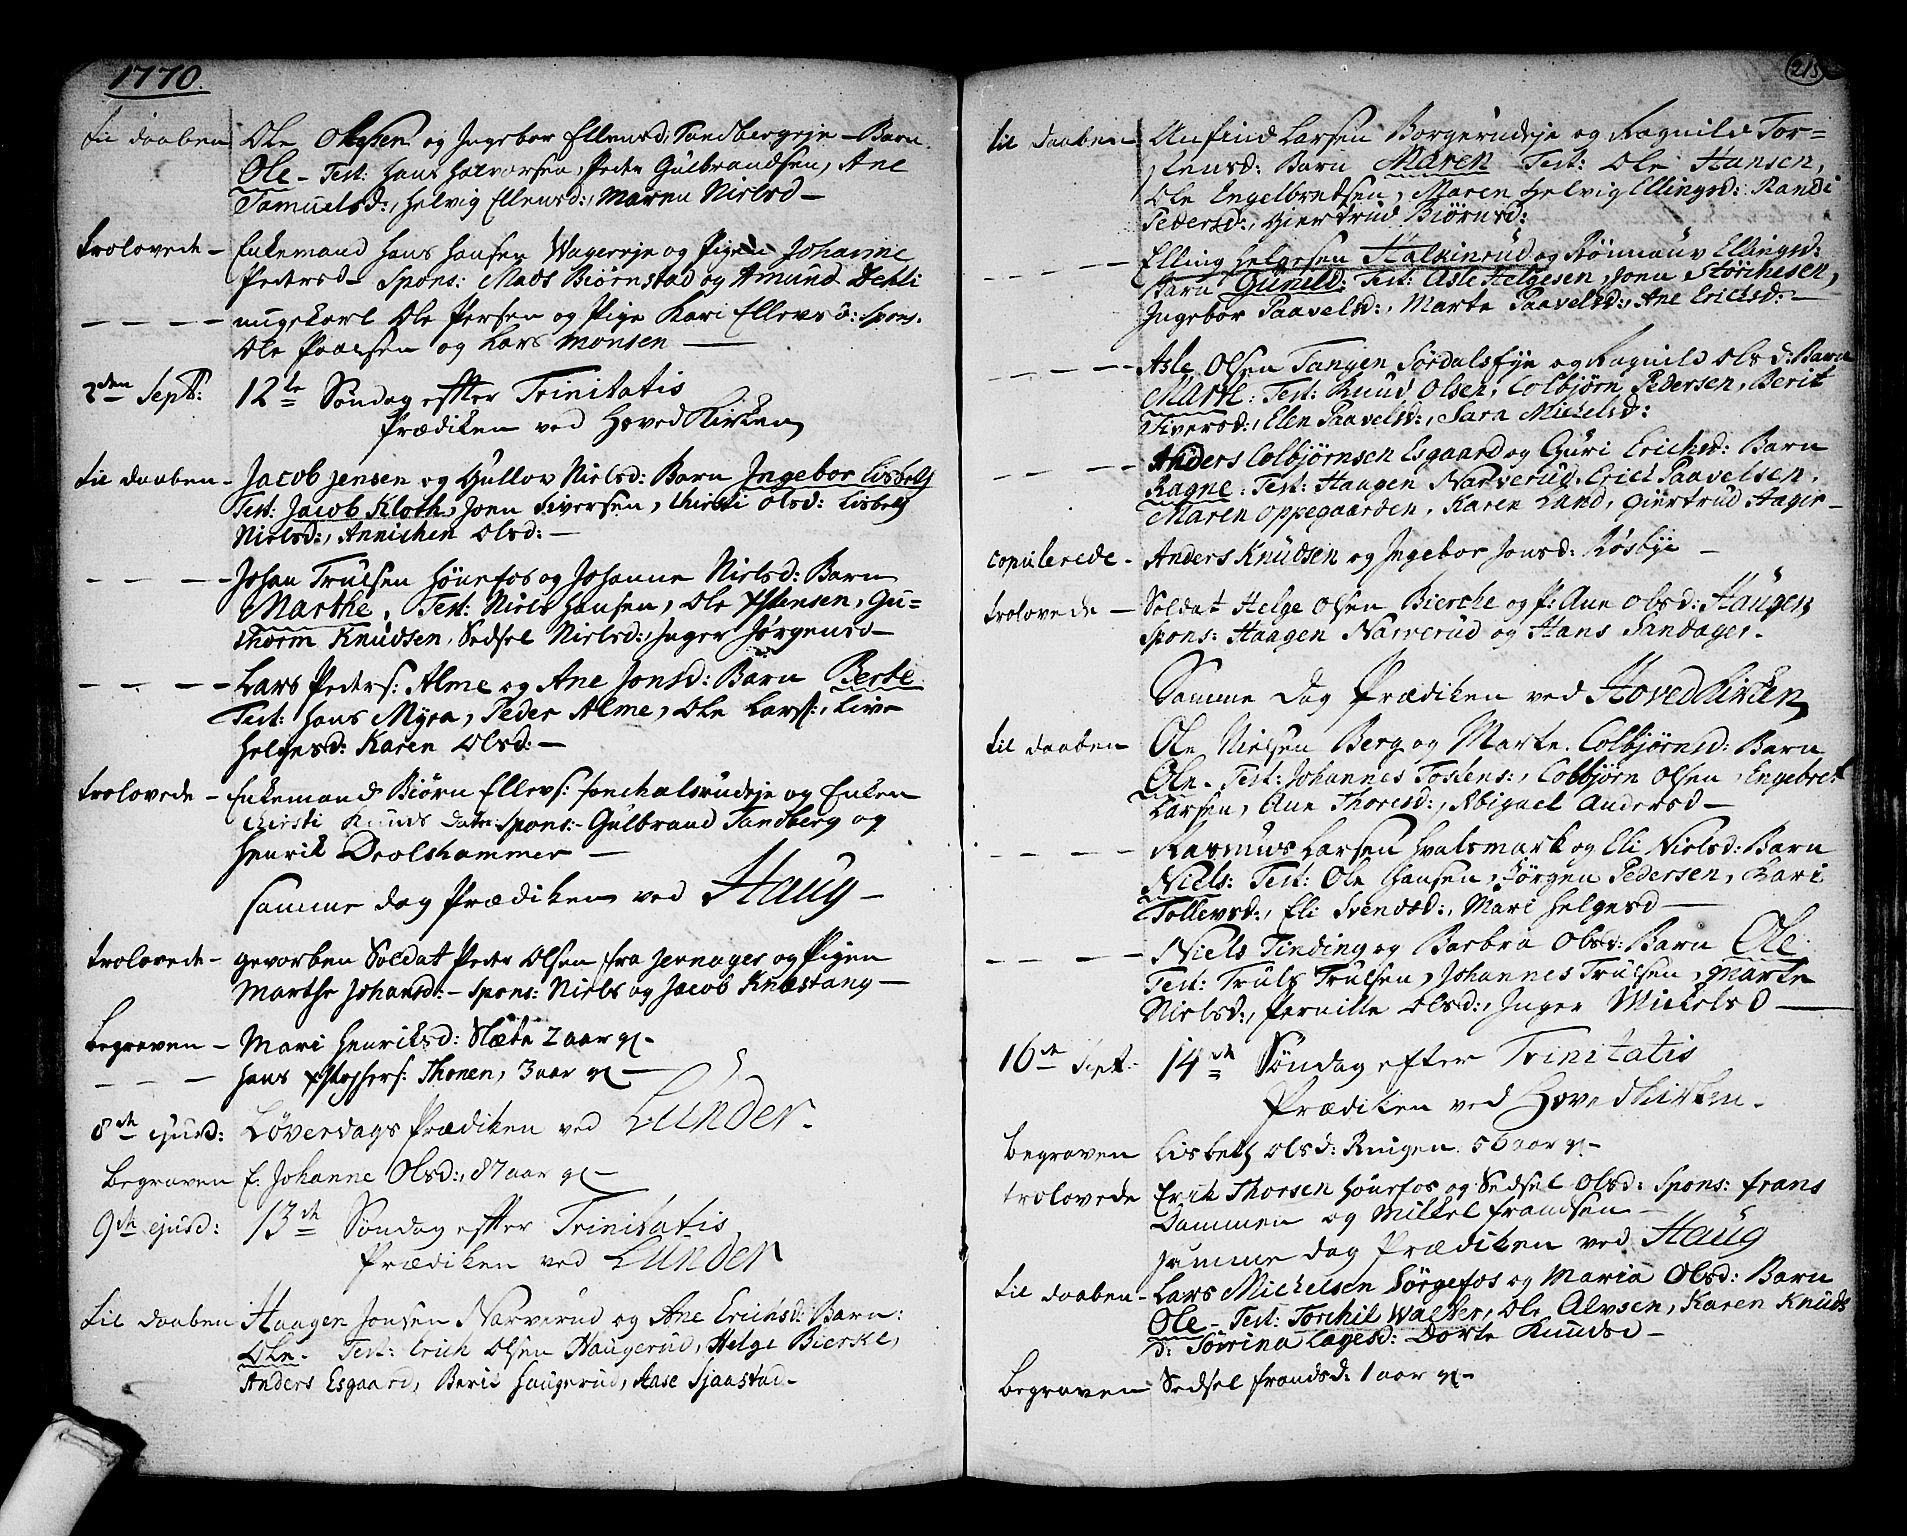 1770.
til daaben Ole Olesen og Ingebor Ellensd: Sandbergeje – Barn
Ole – Test: Hans Halvorsen, Peder Gulbrandsen, Ane
Samuelsd:, Helvig Ellensd:, Maren Nielsd –
trolovede – Enkemand Hans Hansen Wagereje og Pigen Johanne
Pedersd – Spons: Mads Biørnstad og Amund Dehli
– – – – ungekarl Ole Persen og Pige Kari Ellevsd: Spons.
Ole Paalsen og Lars Monsen –
2den Septb: 12te Søndag efter Trinitatis
Prædiken ved HovedKirken
til daaben – Jacob Jensen og Gullov Nielsd: Barn Ingebor Lisbeth
Test: Jacob Kloth, Joen Siversen, Chirsti Olsd: Lisbeth
Nielsd:, Annichen Olsd: –
– – – – Johan Trulsen Hønefos og Johanne Nielsd: Barn
Marthe, Test: Niels Hansen, Ole Østensen, Gu=
thorm Knudsen, Sedsel Nielsd:, Inger Jørgensd –
– – – – Lars Peders: Alme og Ane Jonsd: Barn Berte
Test: Hans Myra, Peder Alme, Ole Larss:, Live
Helgesd: Karen Olsd: –
trolovede – Enkemand Biørn Ellevs: og Enken
Chirsti Knuds Datr: Spons: – Gulbrand Sandberg og
Henrik Drolshammer –
samme dag Prædiken ved Haug –
trolovede – gevorben Soldat Peder Olsen fra Jevnager og Pigen
Marthe Johansd: – Spons: Niels og Jacob Knæstang –
begraven – Mari Henriksd: Slætte 2 aar gl –
– – – Hans Xstophers: Thonen, 3 aar gl –
8de ejusd: Løverdags Prædiken ved Lunder –
begraven E. Johanne Olsd:, 87 aar gl –
9de ejusd: 13de Søndag efter Trinitatis
Prædiken ved Lunder
til daaben Haagen Jonsen Narverud og Ane Erichsd: Barn:
Ole – Test: Erich Olsen Haugerud, Helge Bierke,
Anders Esgaard, Berit Haugerud, Aase Sjaastad –
215
til daaben Anfind Larsen Borgerudeje og Ragnild Tor=
stensd: Barn Maren Test: Ole Hansen,
Ole Engelbretsen, Maren Helvig Ellingsd: Randi
Pedersd:, Giertrud Biørnsd:
– – – – Elling Helgesen Halkinrud og Rønnauv Ellingsd:
Barn Guneld: Test: Asle Helgesen, Joen Størchesen,
Ingebor Paavelsd:, Marte Paavelsd:, Ane Erichsd: –
– – – – Asle Olsen Tangen Sørdalsfje og Ragnild Olsd: Barn
Marte: Test: Knud Olsen, Colbjørn Pedersen, Berit
Siversd:, Elen Paavelsd:, Sara Michelsd:
– – – – Anders Colbjørnsen Esgaard og Guri Erichsd: Barn
Ragne: Test: Haagen Narverud, Erich Paavelsen,
Maren Oppegaarden, Karen Lund, Giertrud Hager –
copulerede – Anders Knudsen og Ingebor Jonsd: Røsbye –
trolovede – Soldat Helge Olsen Bierche og P: Ane Olsd: Haugen
Spons: Haagen Narverud og Hans Sandager –
Samme dag Prædiken ved HovedKirken
til daaben Ole Nielsen Berg og Marte Colbjørnsd: Barn
Ole – Test: Johannes Tostens:, Colbjørn Olsen, Engebret
Larsen, Ane Thoresd:, Abigael Andersd –
– – – – Rasmus Larsen Hvalsmark og Eli Nielsd: Barn
Niels: Test: Ole Hansen, Jørgen Pedersen, Kari
Tollevsd:, Eli Svendsd:, Mari Helgesd –
– – – – Niels Tinding og Barbra Olsd: Barn Ole:
Test: Truls Trulsen, Johannes Trulsen, Marte
Nielsd:, Pernille Olsd:, Inger Mickelsd –
16de Sept: 14de Søndag efter Trinitatis
Prædiken ved HovedKirken –
begraven Lisbeth Olsd: 56 aar gl –
trolovede Erik Thorsen Hønefos og Sedsel Olsd: Spons: Frans
Dammen og Mikkel Frandsen –
samme dag Prædiken ved Haug
til daaben – Lars Michelsen Sørgefos og Maria Olsd: Barn
Ole – Test: Torchil Walter, Ole Alvsen, Karen Knuds
d: Sørrina Lagesd: Dorte Knudsd –
begraven Sedsel Frandsd: 1 aar gl –